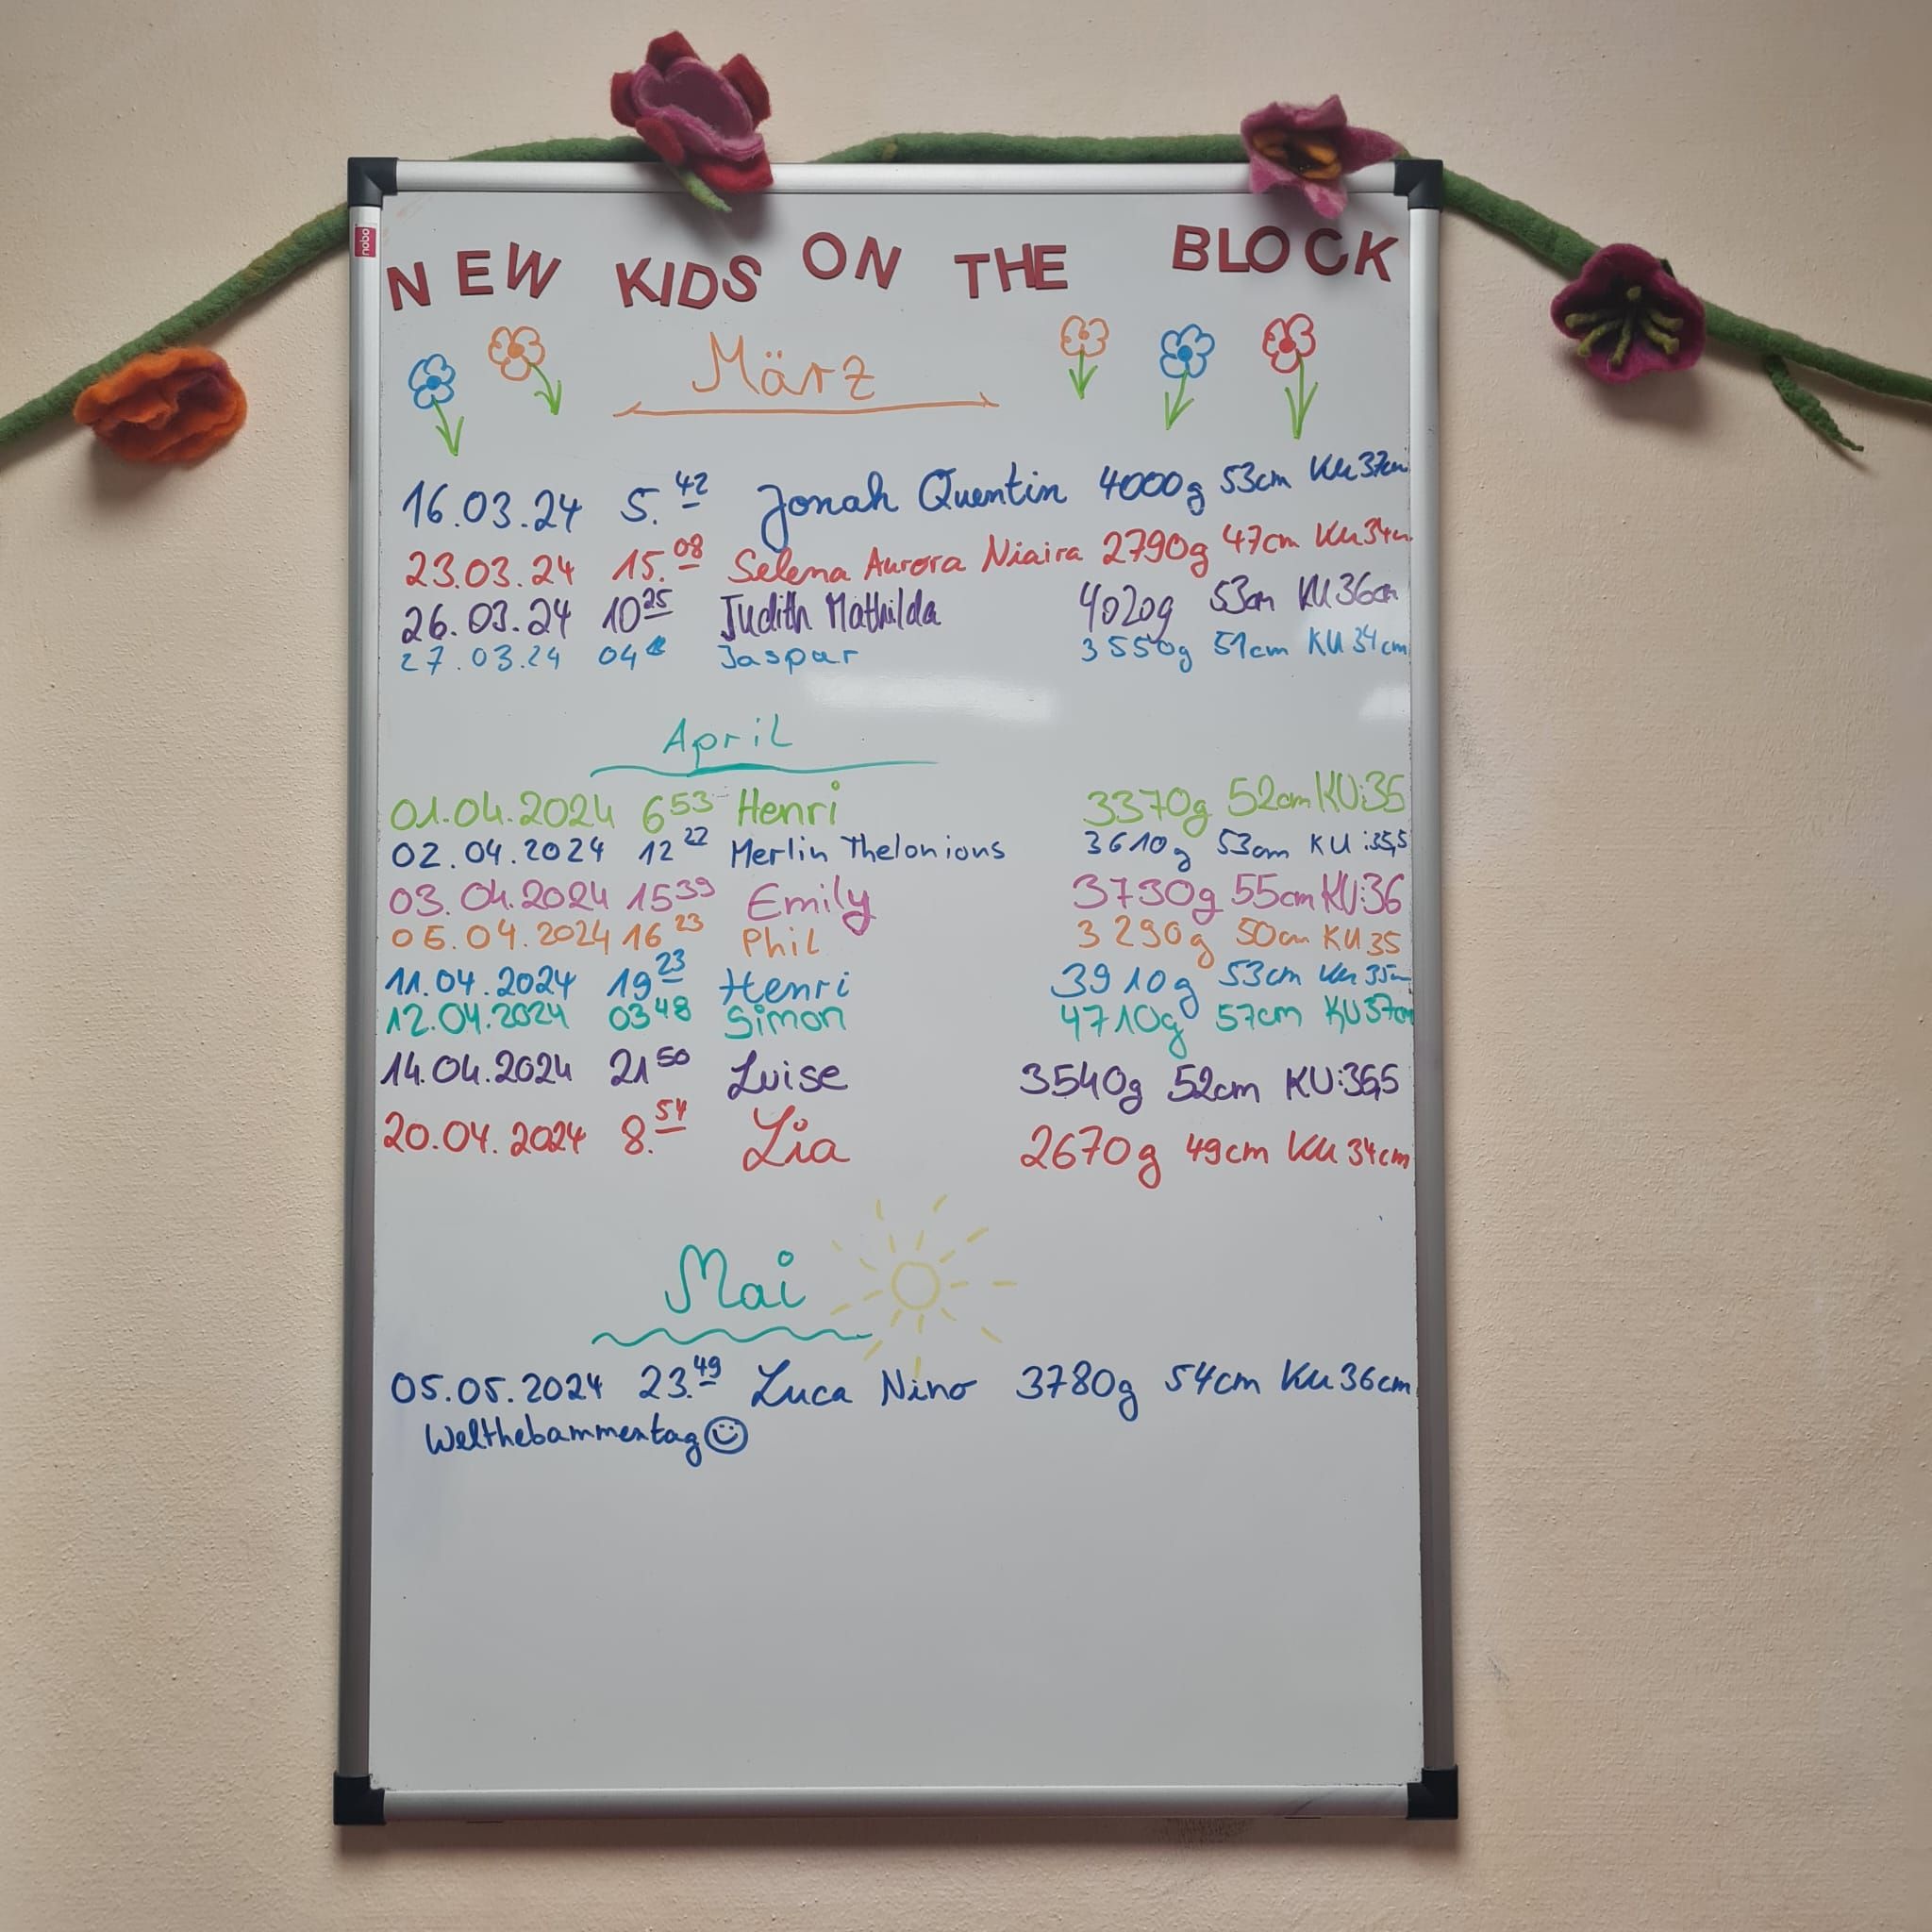 nobo
NEW KIDS ON THE BLOCK
März
16.03.24 5.42 Jonah Quentin 4000g 53cm KU 37cm
23.03.24 15.08 Selena Aurora Niaira 2790g 47cm KU 34cm
26.03.24 10 25 Judith Mathilda 4020g 53cm KU 36cm
27.03.24 04 Jaspar 3550g 51cm KU 34cm
April
01.04.2024 6 53 Henri 3370g 52cm KU:35
02.04.2024 12 22 Merlin Thelonious 3610g 53cm KU:35,5
03.04.2024 15 39 Emily 3730g 55cm KU:36
16 23 Phil 3290g 50cm KU 35
11.04.2024 19 23 Henri 3910g 53cm KU 35cm
12.04.2024 03 48 Simon 4710g 57cm KU 37cm
14.04.2024 21 50 Luise 3540g 52cm KU:36,5
20.04.2024 8.54 Lia 2670g 49cm KU 34cm
Mai
05.05.2024 23.49 Luca Nino 3780g 54cm KU 36cm
Welthebammentag